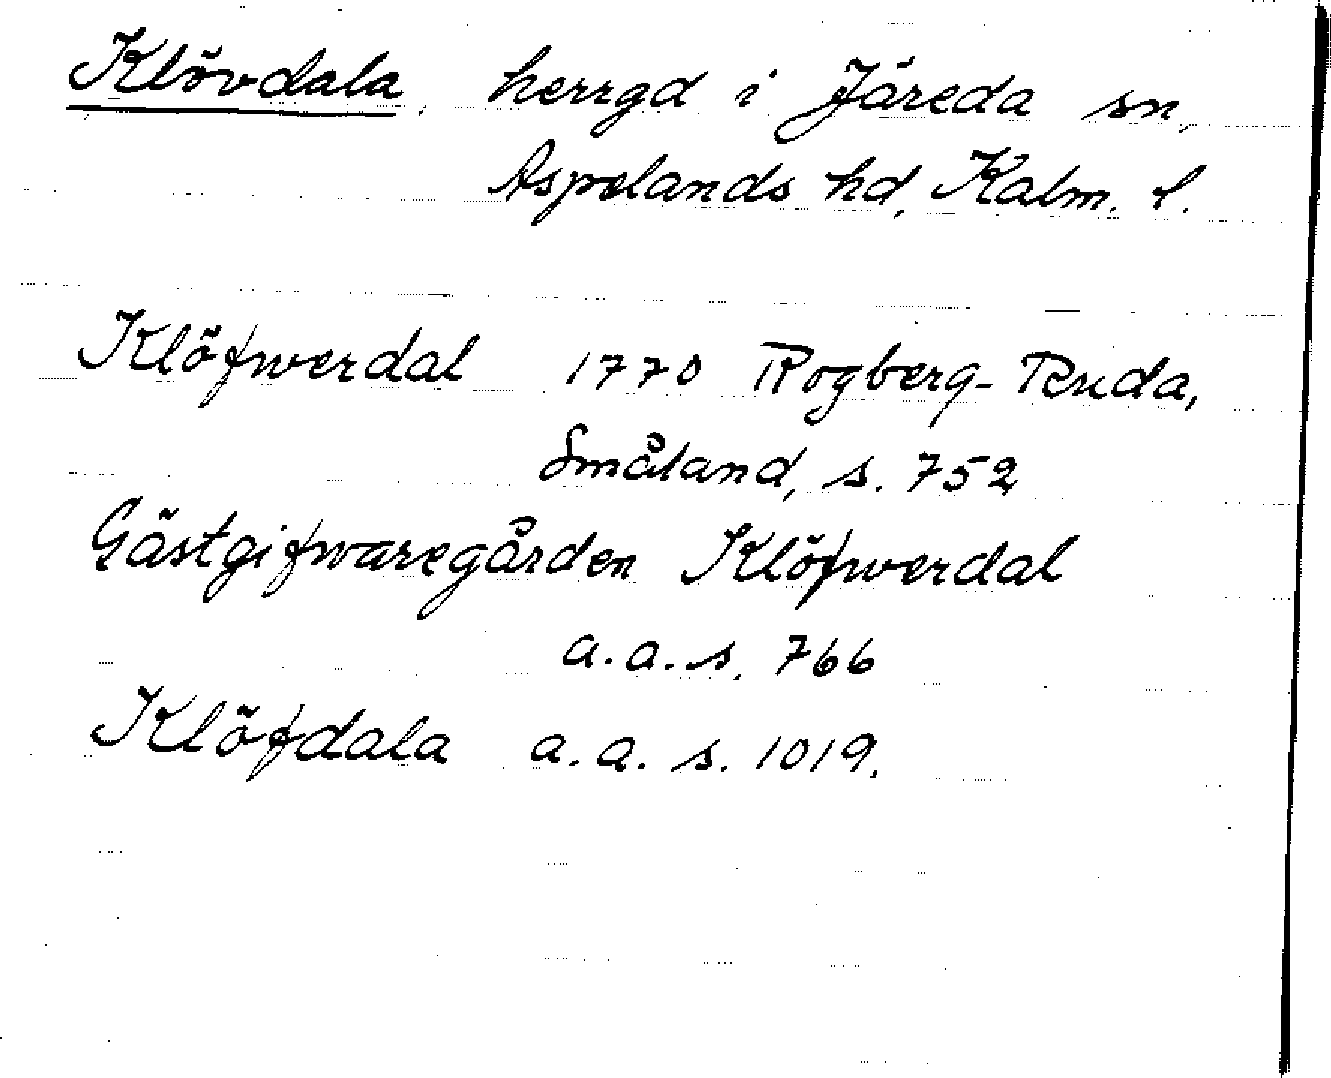 Klövdala, herrgd i Järeda sn,
Aspelands hd, Kalm. l.
Klöfwerdal 1770 Rogberg-Ruda,
Småland, s. 752
Gästgifwaregården Klöfwerdal
a.a.s. 766
Klöfdala a.a.s. 1019.